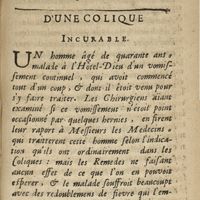 D'UNE COLIQUE
INCURABLE.
UN homme âgé de quarante ans,
malade à l'Hôtel-Dieu d'un vomis-
sement continuel, qui avoit commencé
tout d'un coup, & dont il étoit venu pour
s'y faire traiter. Les Chirurgiens aïant
examiné si ce vomissement n'étoit point
occasionné par quelques hernies, en firent
leur raport à Messieurs les Medecins,
qui traitterent cette homme selon l'indica-
tion qu'ils ont ordinairement dans les
Coliques: mais les Remedes ne faisant
aucun effet de ce que l'on en pouvoit
esperer, & le malade souffroit beaucoup
avec des redoublemens de fievre qui l'em-